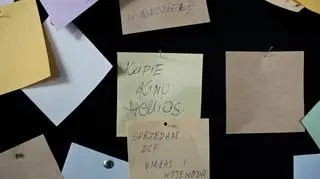 W NIEDZIELĘ
KUPIĘ
KINO
HELIOS
SPRZEDAM
DCF
BIAŁAS I
WOJEWODA